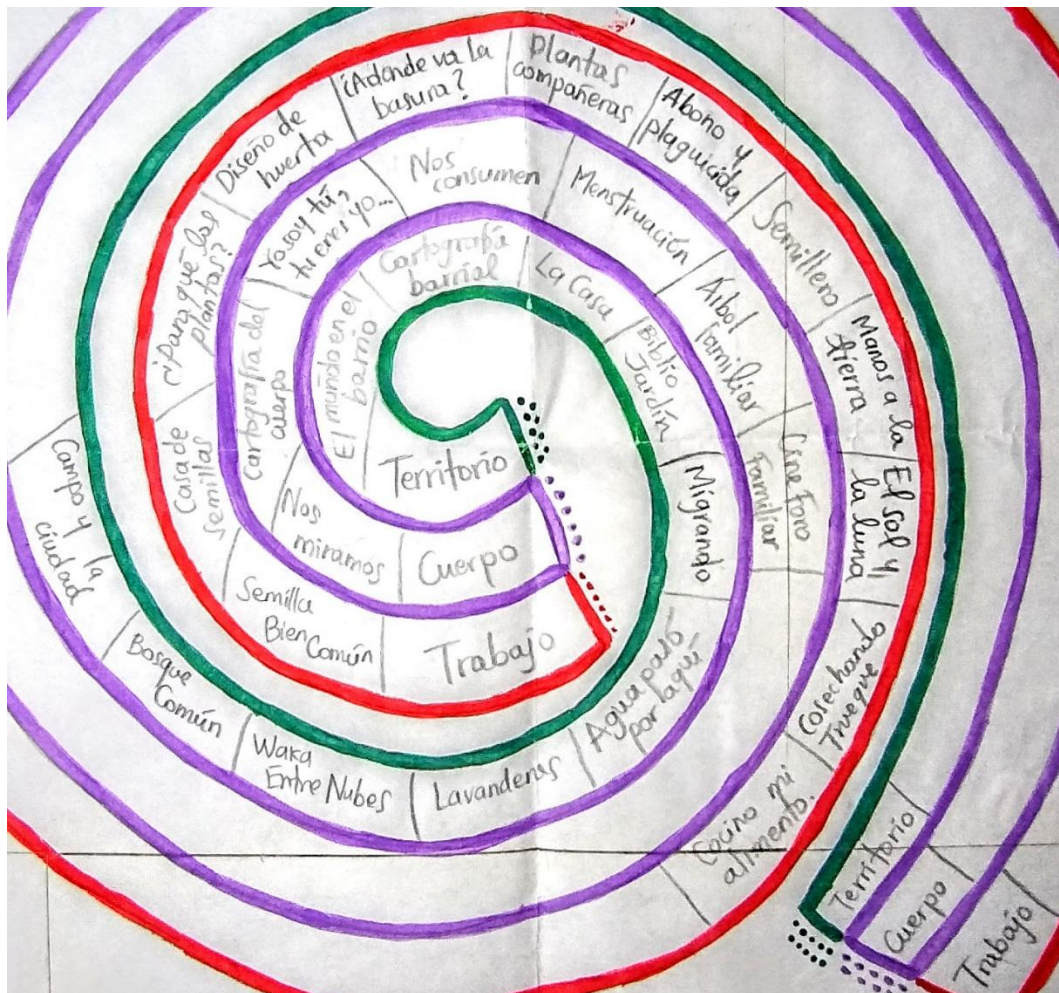 Territorio
El mundo en el
barrio
Cartografía
barrial
La Casa
Biblio
Jardín
Migrando
Agua pasó
por aquí
Lavanderas
Waka
Entre Nubes
Bosque
Común
Campo y la
ciudad
Cuerpo
Nos
miramos
Cartografía del
cuerpo
Yo soy tú,
tu eres yo...
Nos
consumen
Menstruación
Árbol
familiar
Cine Foro
Familiar
Trabajo
Semilla
Bien Común
Casa de
semillas
¿Para qué las
plantas?
Diseño de
huerta
¿Adonde va la
basura?
Plantas
compañeras
Abono y
plaguicida
Semillero
Manos a la
tierra
El sol y
la luna
Cosechando
Trueque
Cocino mi
alimento.
Territorio
Cuerpo
Trabajo